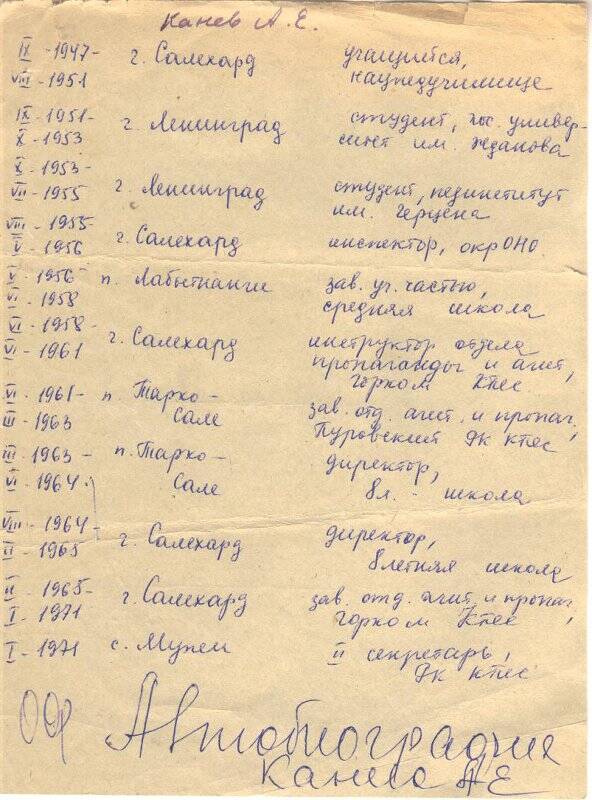 Канев А.Е.
IX - 1947 - г. Салехард учащийся,
VIII - 1951 нацпедучилище
IX - 1951 - г. Ленинград студент, гос. универ-
X - 1953 ситет им. Жданова
X - 1953 -
VII - 1955 г. Ленинград студент, пединститут
им. Герцена
VIII - 1955 - г. Салехард инспектор, окрОНО.
V - 1956
V - 1956 п. Лабытнанги зав. уч. частью,
VI - 1958 средняя школа
VI - 1958 - г. Салехард инструктор отдела
VI - 1961 пропаганды и агит,
горком КПСС
VI - 1961 - п. Тарко- зав. отд. агит. и пропаг,
III - 1963 Сале Пуровский РК КПСС
III - 1963 - п. Тарко- директор,
VI - 1964. Сале 8л. - школа
VIII - 1964 - г. Салехард директор,
II - 1965 8летняя школа
II - 1965 - г. Салехард зав. отд. агит. и пропаг,
I - 1971 горком КПСС
I - 1971 с. Мужи II секретарь,
РК КПСС
ОФ Автобиография
Канева АЕ